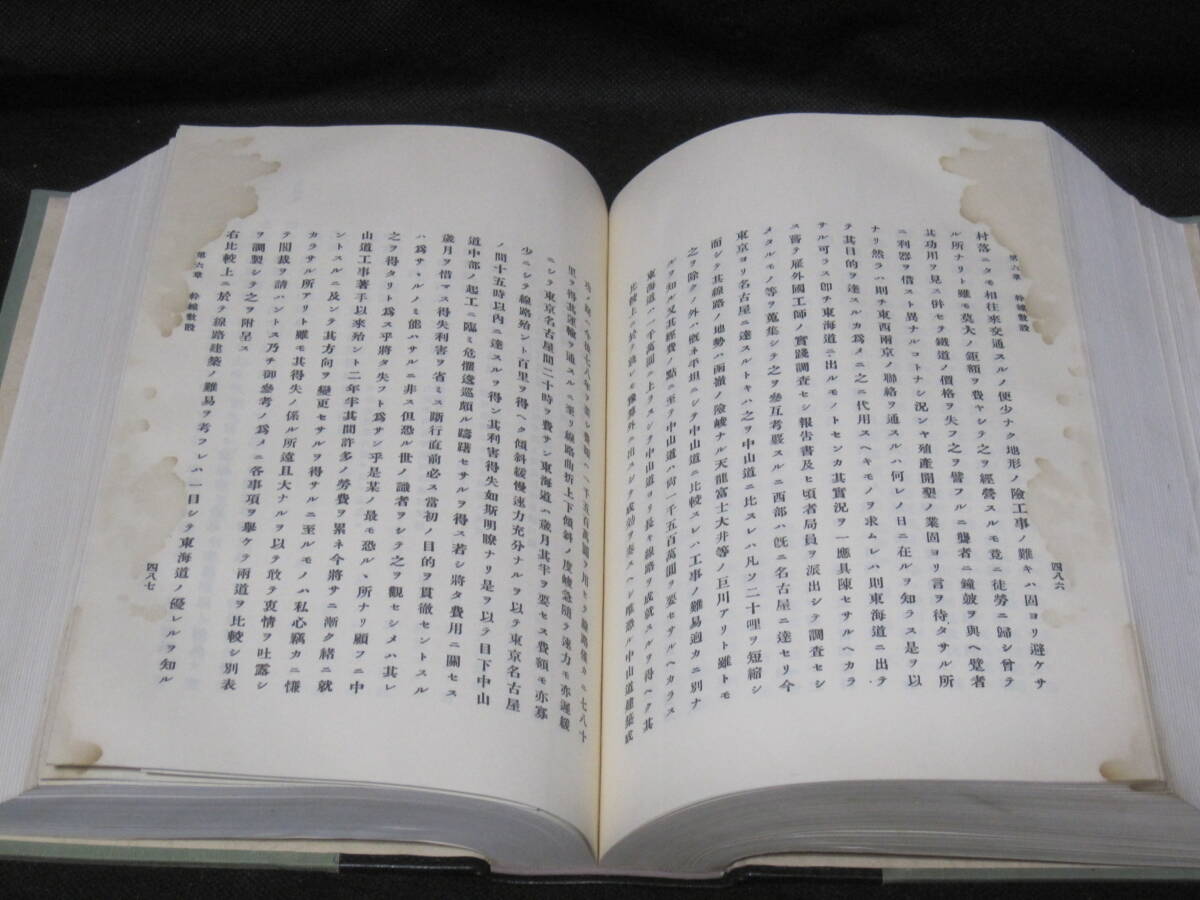 第六章 幹線敷設
四八六
村落ニタモ相往來交通スルノ便少ナク地形ノ險工事ノ難キハ固ヨリ避ケサ
ル所ナリト雖モ莫大ノ鉅額ヲ費ヤシテ之ヲ經營スルモ竟ニ徒勞ニ歸シ曾テ
其功用ヲ見ス併セテ鐵道ノ價格ヲ失フ之ヲ譬フルニ聾者ニ鐘皷ヲ與ヘ躄者
ニ利器ヲ借スト異ナルコトナシ況ンヤ殖產開墾ノ業固ヨリ言ヲ待タサル所
ナリ然ラハ則チ東西兩京ノ聯絡ヲ通スルハ何レノ日ニ在ルヲ知ラス是ヲ以
テ其目的ヲ達スルカ爲メニ之ニ代用スヘキモノヲ求ムレハ則東海道ニ出テ
サル可ラス卽チ東海道ニ出ルモノトセンカ其實況ヲ一應具陳セサルヘカラ
ス嘗テ雇外國工師ノ實踐調查セシ報告書及ヒ頃者局員ヲ派出シテ調查セシ
メタルモノ等ヲ蒐集シテ之ヲ參互考覈スルニ西部ハ旣ニ名古屋ニ達セリ今
東京ヨリ名古屋ニ達スルトキハ之ヲ中山道ニ比スレハ凡ソ二十哩ヲ短縮シ
而シテ其線路ノ地勢ハ函嶺ノ險峻ナル天龍富士大井等ノ巨川アリト雖トモ
之ヲ除クノ外ハ槪ネ平坦ニシテ中山道ニ比較スレハ工事ノ難易逈カニ別ナ
ルヲ知ル又其經費ノ點ニ至テ中山道ハ尙一千五百萬圓ヲ要セサルヘカラス
東海道ハ一千萬圓ノ上ラスシテ中山道ヨリ長キ線路ヲ成就スルヲ得ヘク其
比較上ニ於テ或レモ豫算外ニ出スシテ成功ヲ奏スヘシ唯恐ル中山道建築成
ノ後七八年ヲ要シ費額ハ一千五百萬圓ヲ用ヒテ線路僅カニ七八十
里ヲ得其運輸ヲ通スルニ至リ線路曲折上下傾斜ノ度嶮急隨テ速力モ亦遲緩
ニシテ東京名古屋間二十時ヲ費サン東海道ハ歲月其半ヲ要セス費額モ亦寡
少ニシテ線路殆ント百里ヲ得ヘク傾斜緩慢速力充分ナルヲ以テ東京名古屋
ノ間十五時以內ニ達スルヲ得ン其利害得失如斯明瞭ナリ是ヲ以テ目下中山
道中部ノ起工ニ臨ミ危懼逡巡頗ル躊躇セサルヲ得ス若シ將タ費用ニ關セス
歲月ヲ惜マス得失利害ヲ省ミス斷行直前必ス當初ノ目的ヲ貫徹セントスル
ハ爲サヽルノミ能ハサルニ非ス但恐ル世ノ識者ヲシテ之ヲ觀セシメハ其レ
之ヲ得タリト爲ス乎將タ失フト爲サン乎是某ノ最モ恐ルヽ所ナリ顧フニ中
山道工事著手以來殆ント二年半其間許多ノ勞費ヲ累ネ今將サニ漸ク緖ニ就
ントスルニ及ンテ其方向ヲ變更セサルヲ得サルニ至ルモノハ私心竊カニ慊
カラサル所アリト雖モ其得失ノ係ル所遠且大ナルヲ以テ敢テ衷情ヲ吐露シ
テ閣裁ヲ請ハントス乃チ御參考ノ爲メニ各事項ヲ擧ケテ兩道ヲ比較シ別表
ヲ調製シテ之ヲ附呈ス
右比較上ニ於テ線路建築ノ難易ヲ考フレハ一目シテ東海道ノ優レルヲ知ル
第六章 幹線敷設
四八七